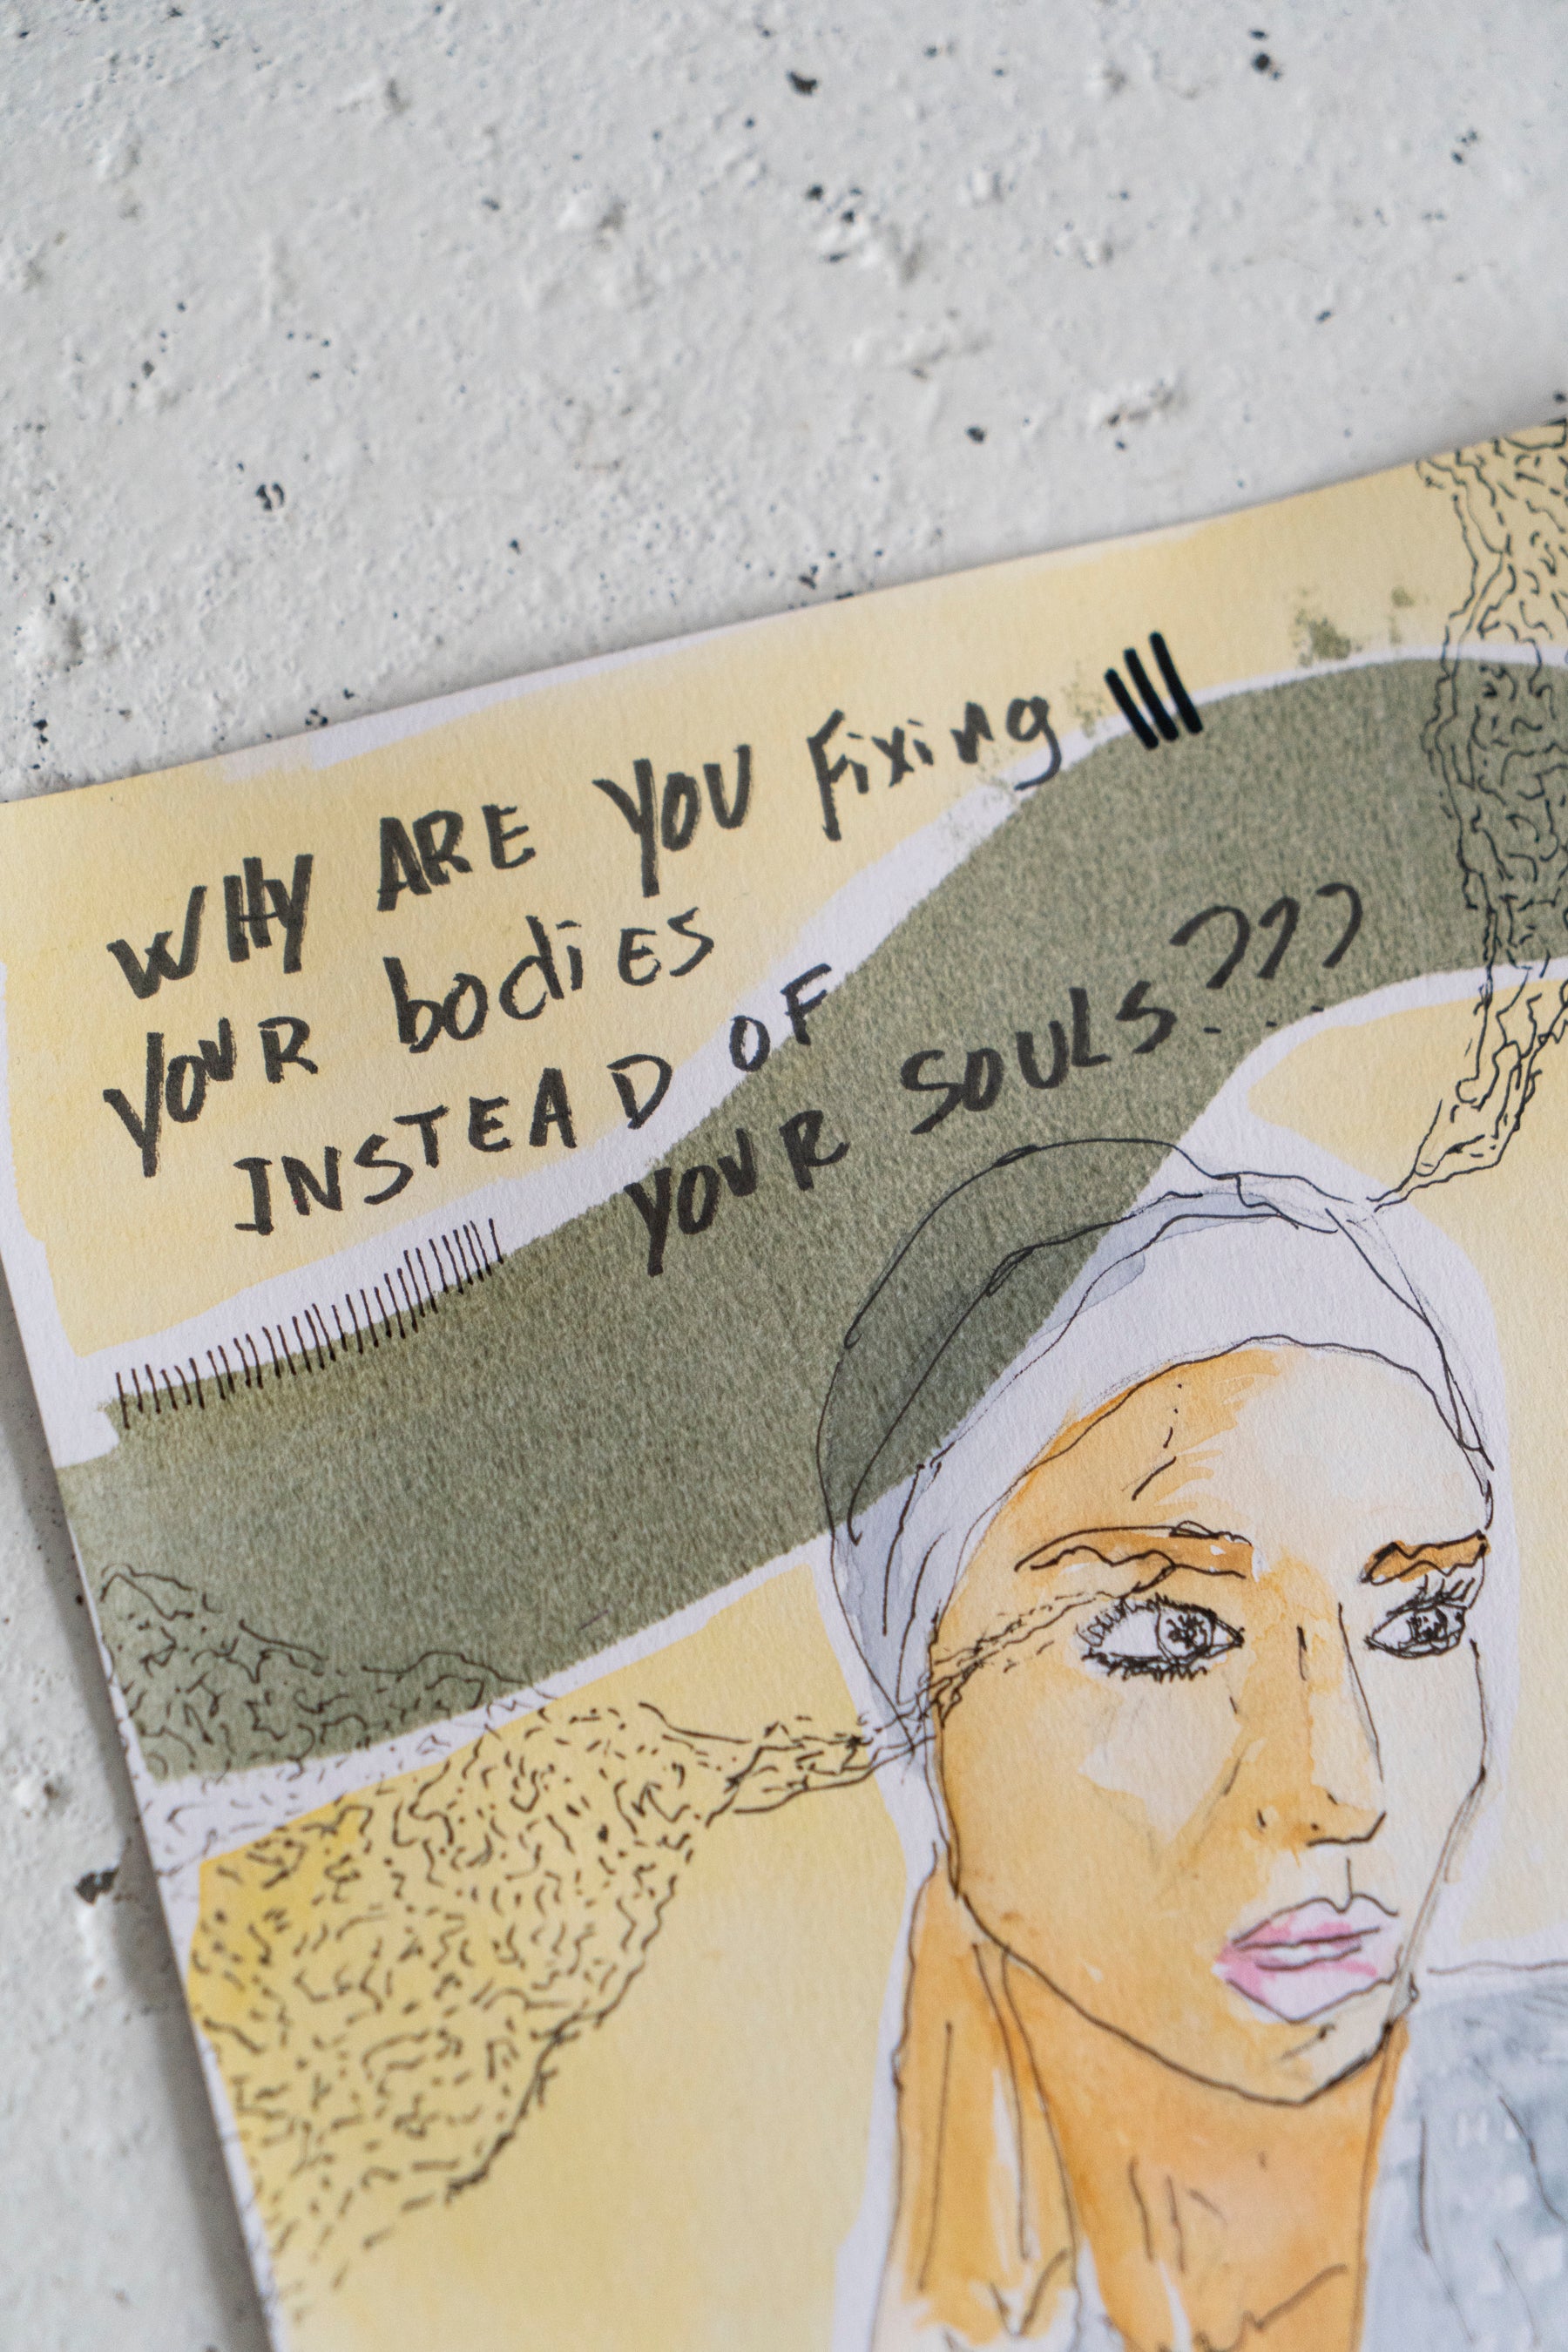 WHY ARE YOU Fixing
YOUR bodiES
INSTEAD OF
YOUR SOULS???